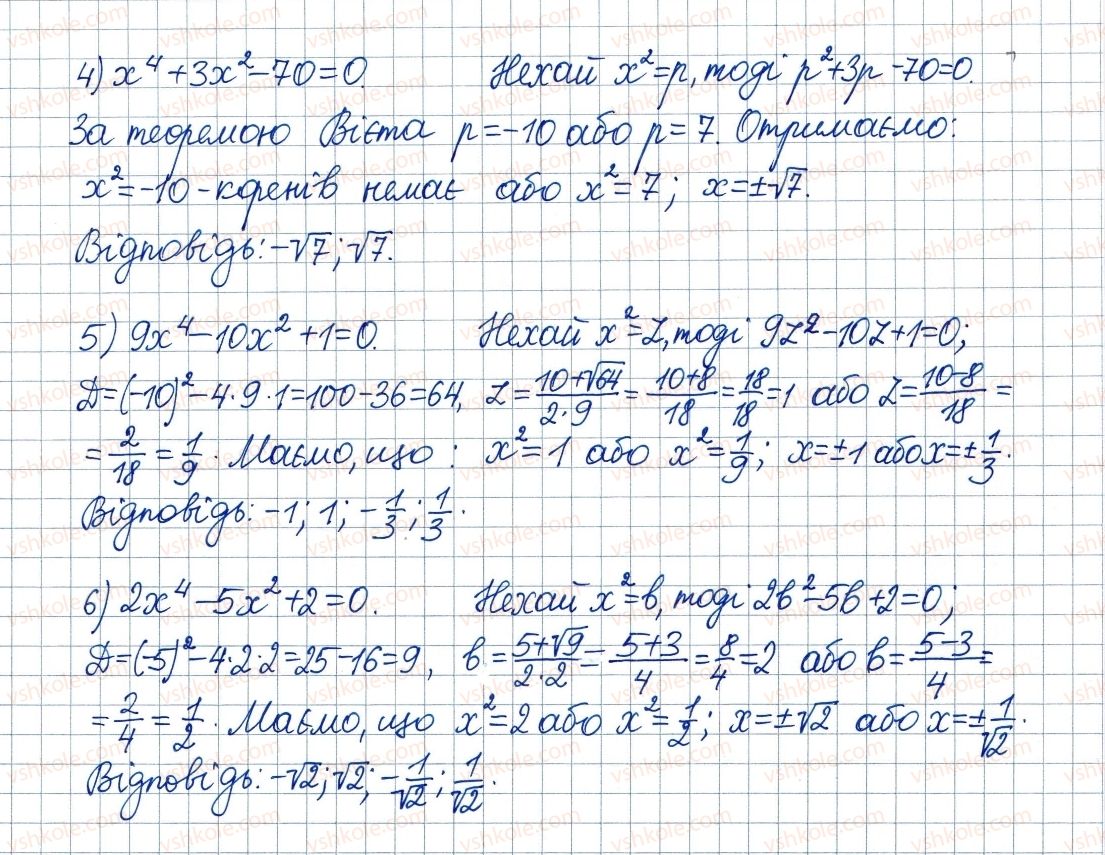 4) x⁴+3x²-70=0. Нехай x²=p, тоді p²+3p-70=0.
За теоремою Вієта p=-10 або p=7. Отримаємо:
x²=-10-коренів немає або x²=7; x=±√7.
Відповідь: -√7; √7.
5) 9x⁴-10x²+1=0. Нехай x²=z, тоді 9z²-10z+1=0;
Д=(-10)²-4·9·1=100-36=64, z=(10+√64)/(2·9)=(10+8)/18=18/18=1 або z=(10-8)/18=
=2/18=1/9. Маємо, що: x²=1 або x²=1/9; x=±1 або x=±1/3.
Відповідь: -1; 1; -1/3; 1/3.
6) 2x⁴-5x²+2=0. Нехай x²=в, тоді 2в²-5в+2=0;
Д=(-5)²-4·2·2=25-16=9, в=(5+√9)/(2·2)=(5+3)/4=8/4=2 або в=(5-3)/4=
=2/4=1/2. Маємо, що x²=2 або x²=1/2; x=±√2 або x=±1/√2.
Відповідь: -√2; √2; -1/√2; 1/√2.